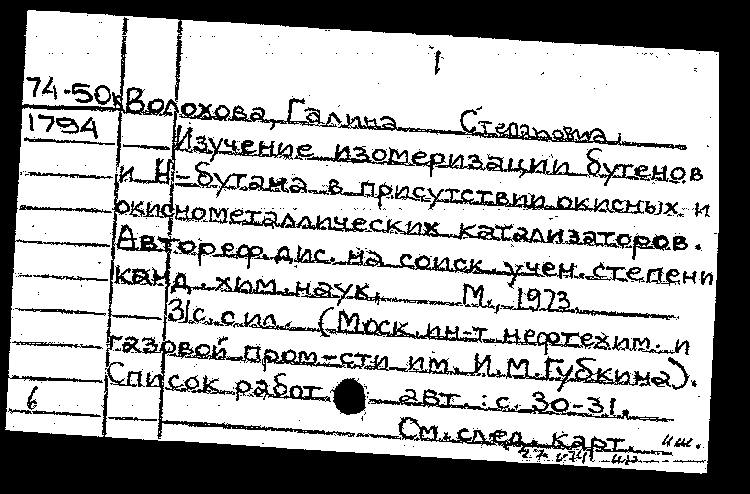 1
74-50к Волохова, Галина Степановна.
1794
Изучение изомеризации бутенов
и Н-бутана в присутствии окисных и
окиснометаллических катализаторов.
Автореф. дис. на соиск. учен. степени
канд. хим. наук. М., 1973.
31с. с ил. (Моск. ин-т нефтехим. и
газовой пром-сти им. И.М.Губкина).
Список работ авт.: с. 30-31.
6
См. след. карт.